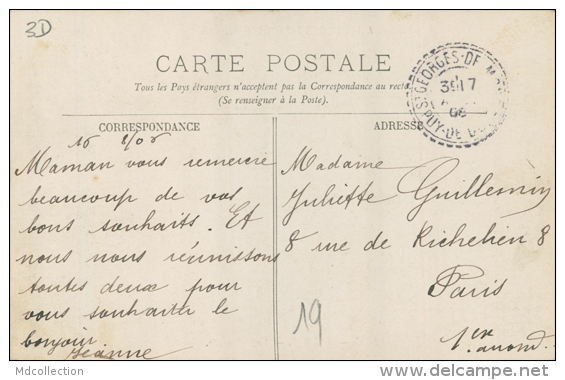 3D
CARTE POSTALE
Tous les Pays étrangers n'acceptent pas la Correspondance au recto
(Se renseigner à la Poste).
ST GEORGES-DE
PUY-DE
17
CORRESPONDANCE
ADRESSE
Maman vous remercie
beaucoup de vos
bons souhaits. Et
nous nous réunissons
toutes deux pour
vous souhaiter le
bonjour
Jeanne
Madame
Juliette Guillemin
8 rue de Richelieu 8
Paris
1er arrond.
19
Mdcollection
www.delcampe.net